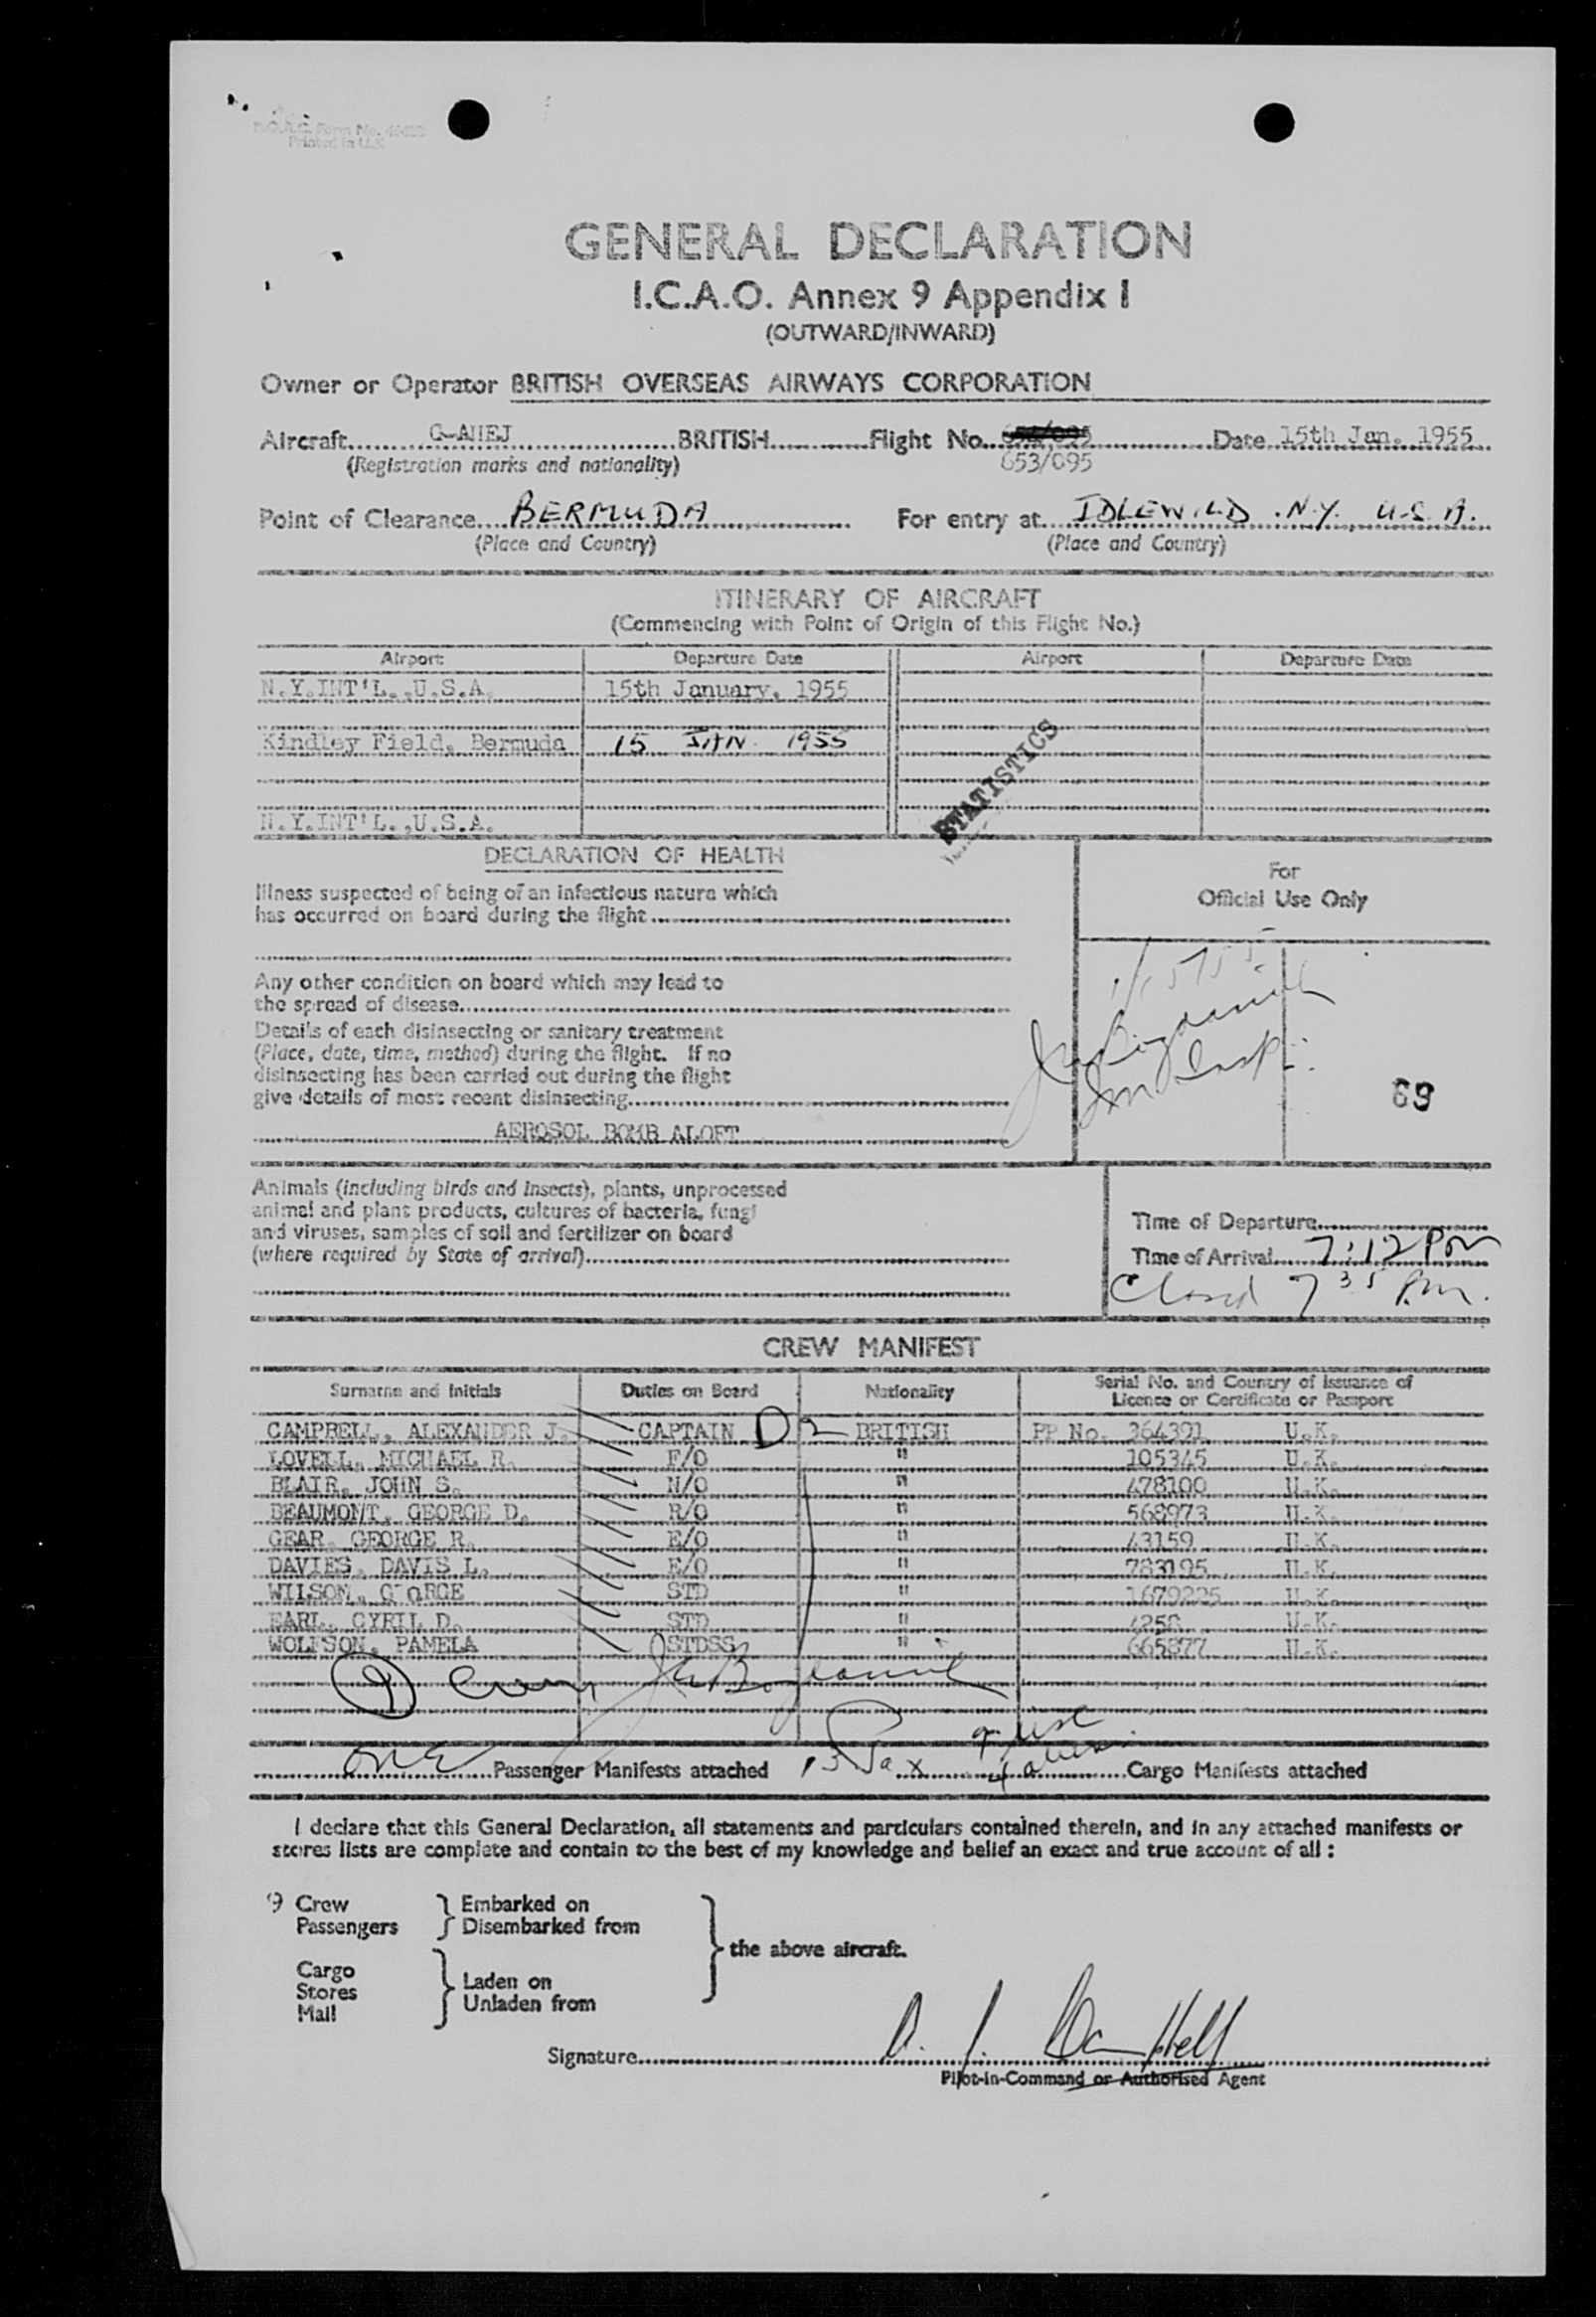 Printed in U.K.
GENERAL DECLARATION
I.C.A.O. Annex 9 Appendix I
(OUTWARD/INWARD)
Owner or Operator BRITISH OVERSEAS AIRWAYS CORPORATION
Aircraft G-AHEJ BRITISH Flight No. Date 15th Jan. 1955
(Registration marks and nationality) 653/695
Point of Clearance BERMUDA For entry at IDLEWILD .N.Y. U.S.A.
(Place and Country) (Place and Country)
ITINERARY OF AIRCRAFT
(Commencing with Point of Origin of this Flight No.)
Airport Departure Date Airport Departure Date
N.Y.INT'L.,U.S.A. 15th January, 1955
Kindley Field, Bermuda 15 JAN 1955
STATISTICS
N.Y.INT'L.,U.S.A.
DECLARATION OF HEALTH
For
Official Use Only
Illness suspected of being of an infectious nature which
has occurred on board during the flight
1/15/55
Any other condition on board which may lead to
the spread of disease
Details of each disinsecting or sanitary treatment
(Place, date, time, method) during the flight. If no
disinsecting has been carried out during the flight
give details of most recent disinsecting
69
AEROSOL BOMB ALOFT
Animals (including birds and insects), plants, unprocessed
animal and plant products, cultures of bacteria, fungi
and viruses, samples of soil and fertilizer on board
(where required by State of arrival)
Time of Departure
Time of Arrival 7:12 PM
Closed 7 35 P.m.
CREW MANIFEST
Surname and Initials Duties on Board Nationality Serial No. and Country of Issuance of
Licence or Certificate or Passport
CAMPBELL, ALEXANDER J. CAPTAIN D2 BRITISH PP No. 364391 U.K.
LOVELL, MICHAEL R. F/O " 105345 U.K.
BLAIR, JOHN S. N/O " 478100 U.K.
BEAUMONT, GEORGE D. R/O " 568973 U.K.
GEAR, GEORGE R. E/O " 43159 U.K.
DAVIES, DAVIS L. E/O " 783195 U.K.
WILSON, GEORGE STD " 1679225 U.K.
EARL, CYRIL D. STD " 4258 U.K.
WOLFSON, PAMELA STDSS " 665877 U.K.
9 Crew
one Passenger Manifests attached 13 Pax Cargo Manifests attached
I declare that this General Declaration, all statements and particulars contained therein, and in any attached manifests or
stores lists are complete and contain to the best of my knowledge and belief an exact and true account of all :
9 Crew } Embarked on
Passengers } Disembarked from
} the above aircraft.
Cargo
Stores } Laden on
Mail } Unladen from
Signature A. J. Campbell
Pilot-in-Command or Authorised Agent